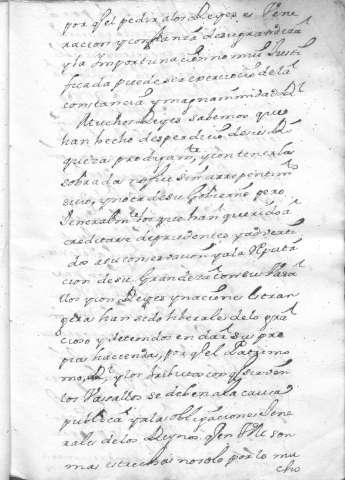 por q̃ el pedir a los Reyes es Vene
racion y confianza de su grandeza
y la Importunacion no mui Justi
ficada puede ser exercicio de la
constancia y magnanimidad Rl
Muchos Reyes sabemos que
han hecho desperdicio de su Ri
queza prodigamte, y con tenerla
sobrada no fue sin arrepentim
suio, y nota de su Govierno pero
Generalmte los que han querido a
creditarse de prudentes y adverti
dos a su conservacion y a la Reputa
cion de su Grandeza con sus Vasa
llos y con Reyes, y naciones estran
geras han sido liberales de lo gra
cioso y detenidos en dar su pro
pia hacienda, por q̃ el Patrimo
nio, Rl y los tributos con q̃ le sirven
los Vasallos se deben a la causa
publica y a las obligaciones Gene
rales de los Reynos, q̃ en VM son
mas estrechas no solo por lo mu
cho